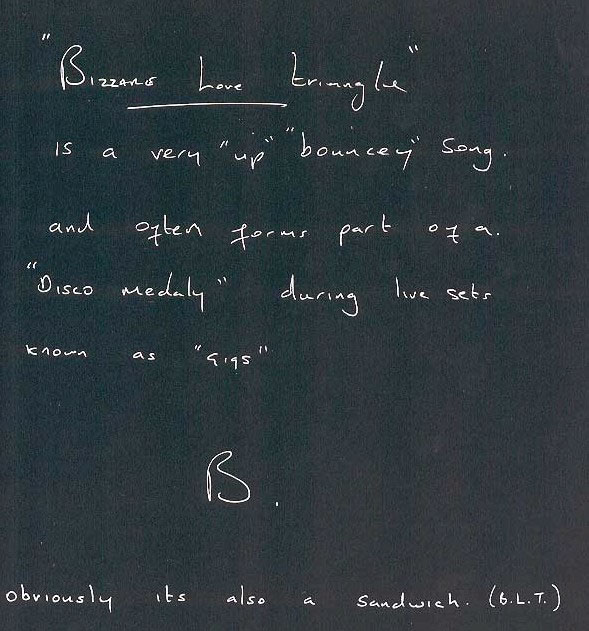 "Bizzare Love trianglle"
is a very "up" "bouncey" song.
and often forms part of a.
"Disco medaly" during live sets
known as "gigs"
B.
obviously its also a sandwich. (B.L.T.)